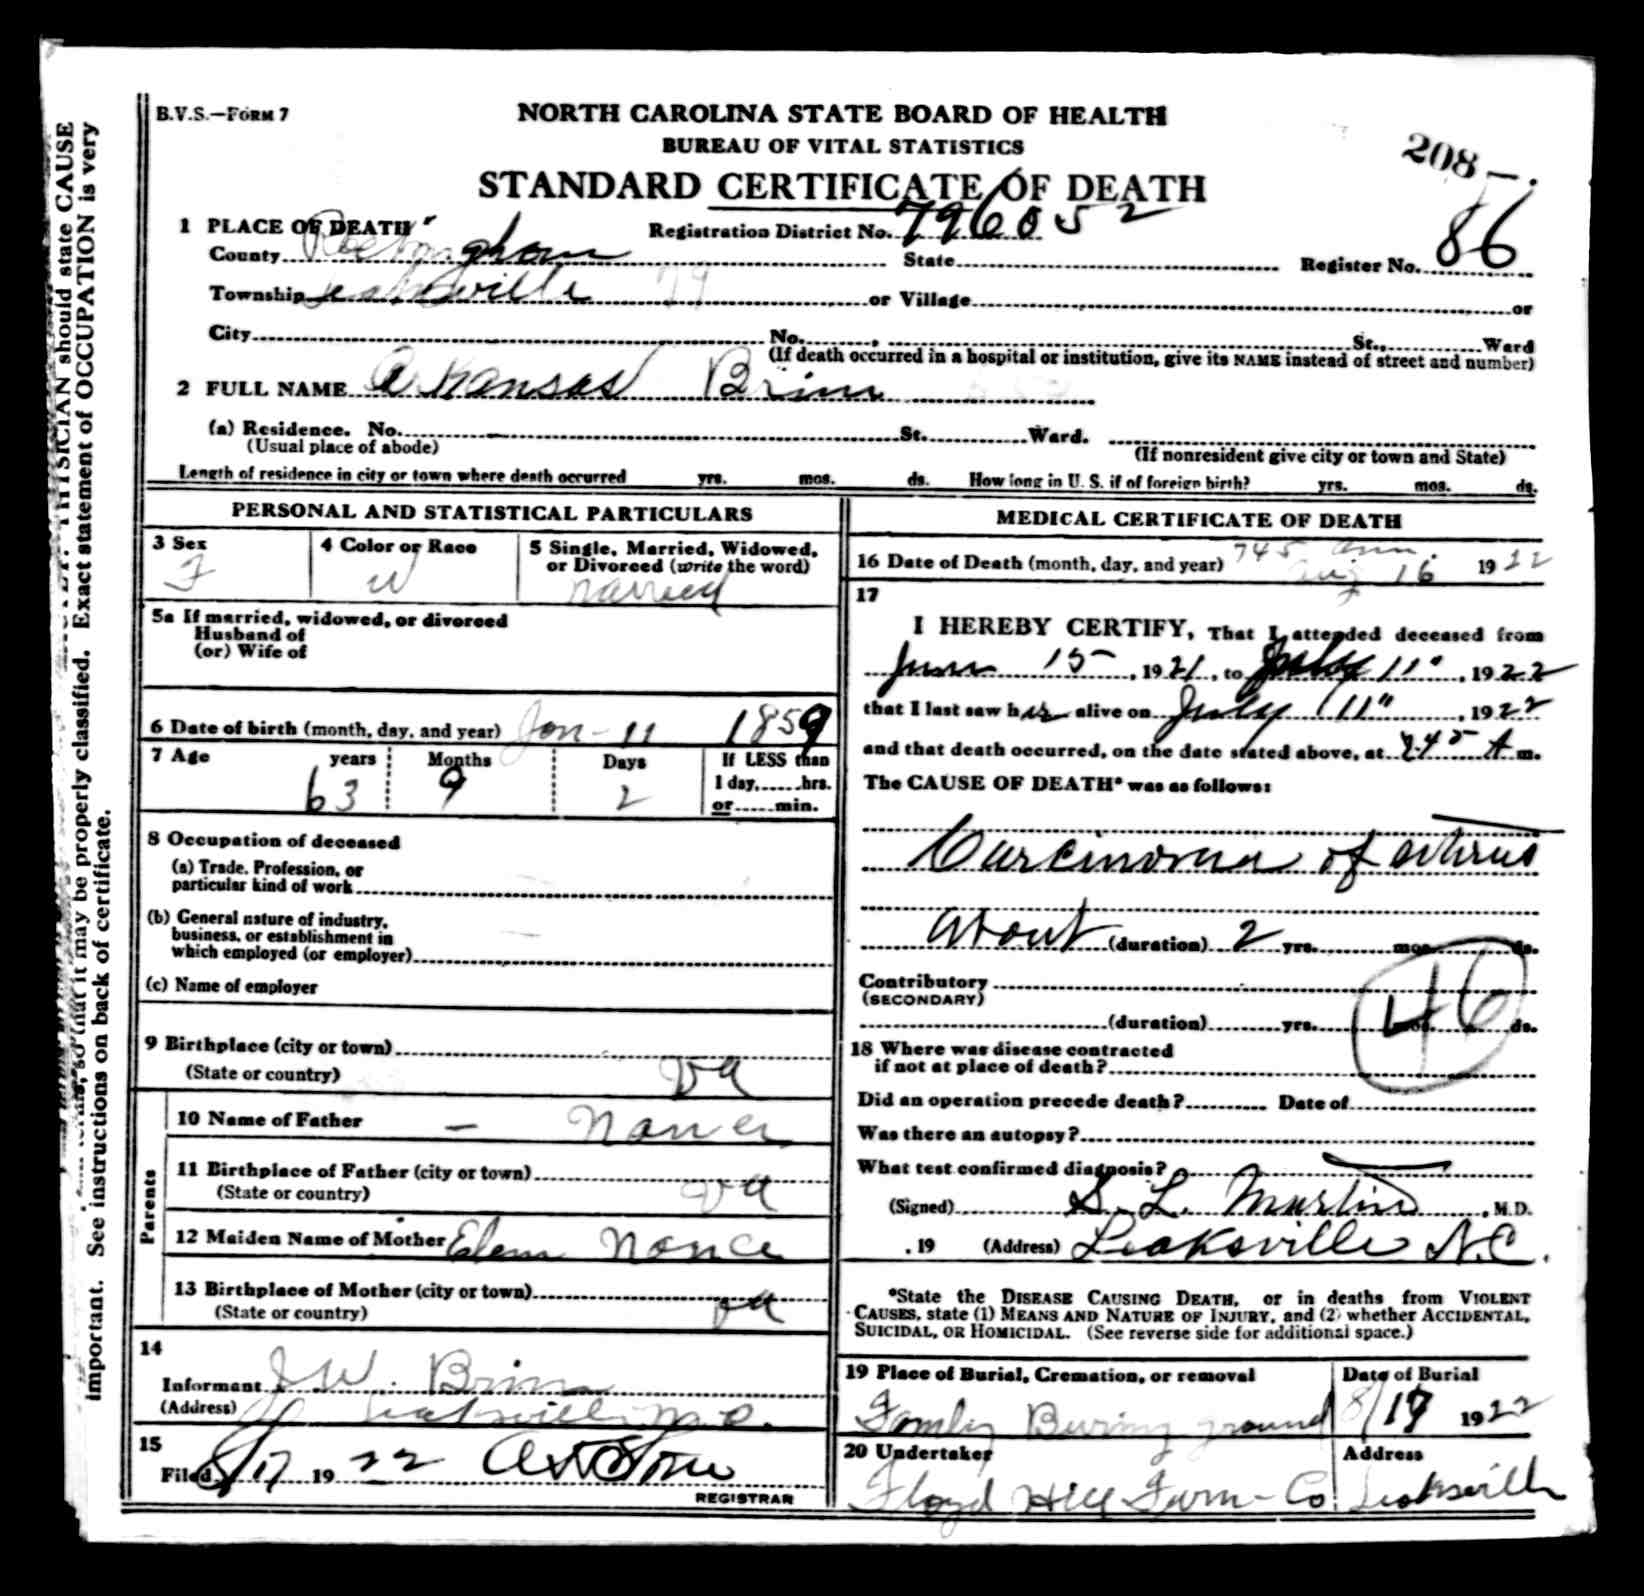 B.V.S.—FORM 7
NORTH CAROLINA STATE BOARD OF HEALTH
BUREAU OF VITAL STATISTICS
STANDARD CERTIFICATE OF DEATH
208-.
1 PLACE OF DEATH
Registration District No. 796052
County Rockingham State Register No. 86
Township Leaksville 79 or Village or
City No. , St., Ward
(If death occurred in a hospital or institution, give its NAME instead of street and number)
2 FULL NAME Arkansas Brim
(a) Residence. No. St. Ward.
(Usual place of abode) (If nonresident give city or town and State)
Length of residence in city or town where death occurred yrs. mos. ds. How long in U. S. if of foreign birth? yrs. mos. ds.
PERSONAL AND STATISTICAL PARTICULARS
3 Sex 4 Color or Race 5 Single, Married, Widowed, or Divorced (write the word)
F W Married
5a If married, widowed, or divorced
Husband of
(or) Wife of
6 Date of birth (month, day, and year) Jan - 11 1859
7 Age years Months Days If LESS than
1 day, hrs.
63 9 2 or min.
8 Occupation of deceased
(a) Trade, Profession, or
particular kind of work
(b) General nature of industry,
business, or establishment in
which employed (or employer)
(c) Name of employer
9 Birthplace (city or town)
(State or country) Va
Parents
10 Name of Father –
11 Birthplace of Father (city or town)
(State or country) Va
12 Maiden Name of Mother Nance
13 Birthplace of Mother (city or town)
(State or country) Va
14
Informant J W. Brim
(Address) Leaksville N. C.
15
Filed 8/17 1922
REGISTRAR
MEDICAL CERTIFICATE OF DEATH
16 Date of Death (month, day, and year) 745 am. Aug 16 1922
17
I HEREBY CERTIFY, That I attended deceased from
June 15, 1921, to July 11", 1922
that I last saw her alive on July 11", 1922
and that death occurred, on the date stated above, at 745 A m.
The CAUSE OF DEATH* was as follows:
Carcinoma of uterus
About (duration) 2 yrs. mos. ds.
Contributory
(SECONDARY)
(duration) yrs. mos. ds.
46
18 Where was disease contracted
if not at place of death?
Did an operation precede death? Date of
Was there an autopsy?
What test confirmed diagnosis?
(Signed) S. L. Martin, M.D.
, 19 (Address) Leaksville N.C.
*State the DISEASE CAUSING DEATH, or in deaths from VIOLENT
CAUSES, state (1) MEANS AND NATURE OF INJURY, and (2) whether ACCIDENTAL,
SUICIDAL, OR HOMICIDAL. (See reverse side for additional space.)
19 Place of Burial, Cremation, or removal Date of Burial
Family Buring ground 8/17 1922
20 Undertaker Address
Floyd Hill Furn-Co Leaksville
PHYSICIAN should state CAUSE
so that it may be properly classified. Exact statement of OCCUPATION is very
important. See instructions on back of certificate.